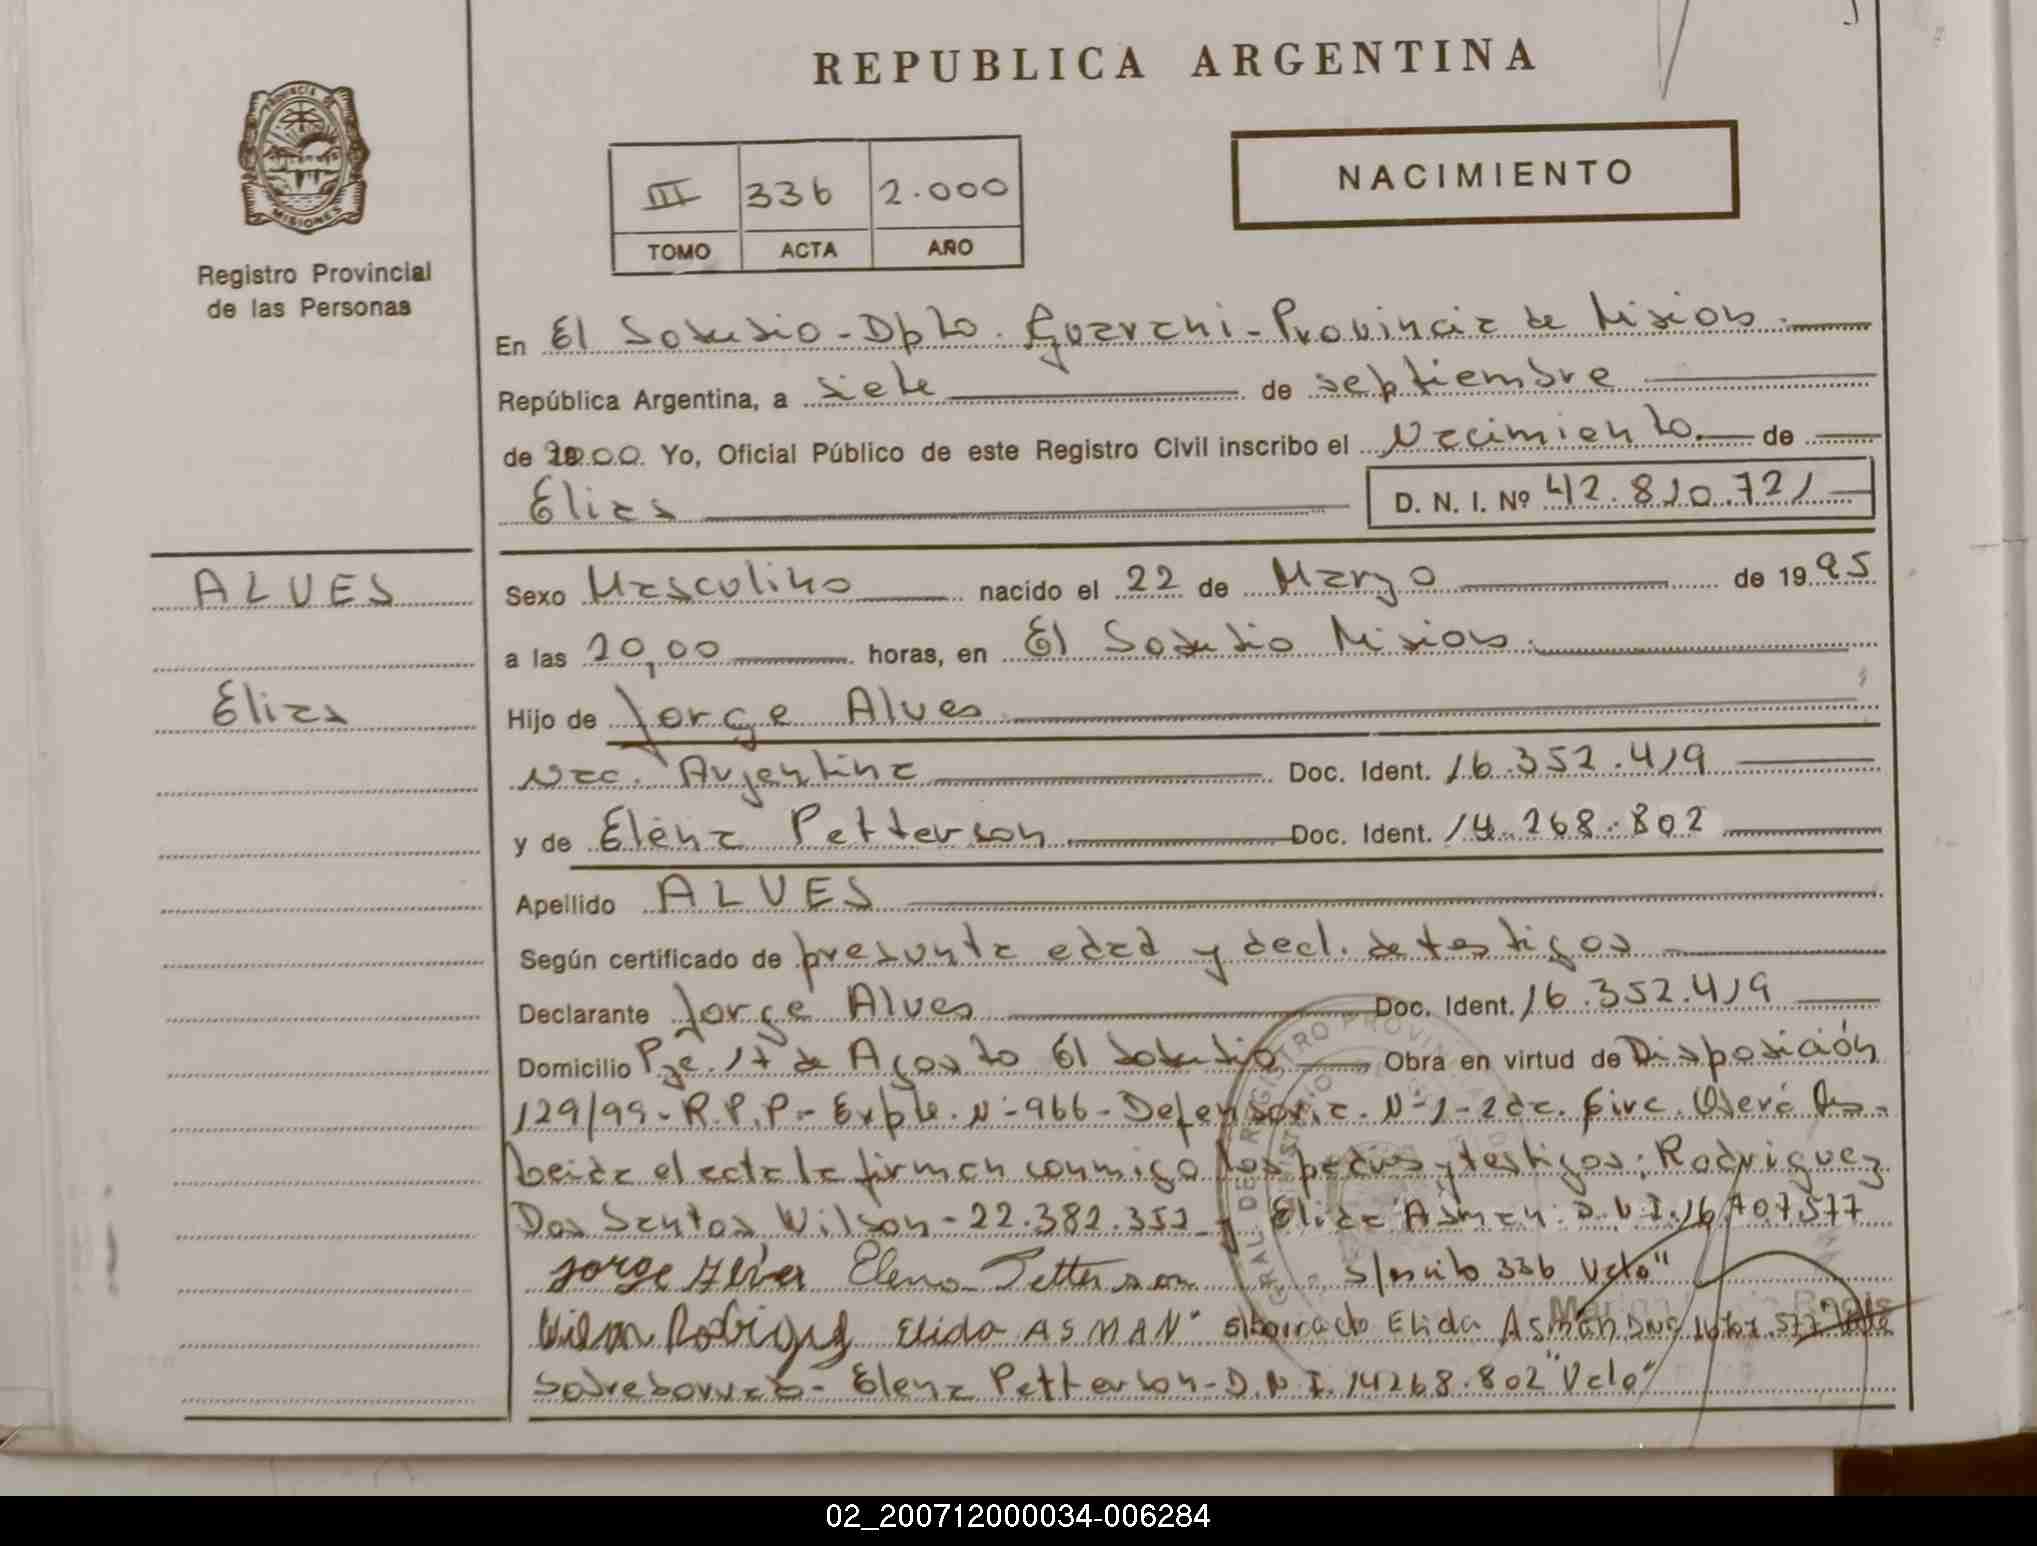 REPUBLICA ARGENTINA
PROVINCIA DE MISIONES
NACIMIENTO
III 336 2.000
TOMO ACTA AÑO
Registro Provincial
de las Personas
En El Soberbio - Dpto. Guarani - Provincia de Misiones.
República Argentina, a siete de septiembre
de 2000. Yo, Oficial Público de este Registro Civil inscribo el Nacimiento de
Elias D. N. I. Nº 42.810.721
ALVES
Elias
Sexo Masculino nacido el 22 de Marzo de 1995
a las 20,00 horas, en El Soberbio Misiones.
Hijo de Jorge Alves
Nac. Argentina Doc. Ident. 16.352.419
y de Elena Petterson Doc. Ident. 14.268.802
Apellido ALVES
Según certificado de presunta edad y decl. de testigos
Declarante Jorge Alves Doc. Ident. 16.352.419
Domicilio Pje. 17 de Agosto El Soberbio Obra en virtud de Disposición
129/99 - R.P.P. - Expte. Nº 966 - Defensoria Nº 1 - 2da. Circ. Oberá
leida el acta la firman conmigo los padres y testigos: Rodriguez
Dos Santos Wilson - 22.382.352 y Elida Asman. D.N.I. 16.707.577
Jorge Alves Elena Petterson S/escrito 336 Vale"
Wilson Rodriguez Elida ASMAN" S/borrado Elida Asman DNI 16707.577 Vale
Sobreborrado - Elena Petterson - D.N.I. 14268.802 "Vale"
02_200712000034-006284